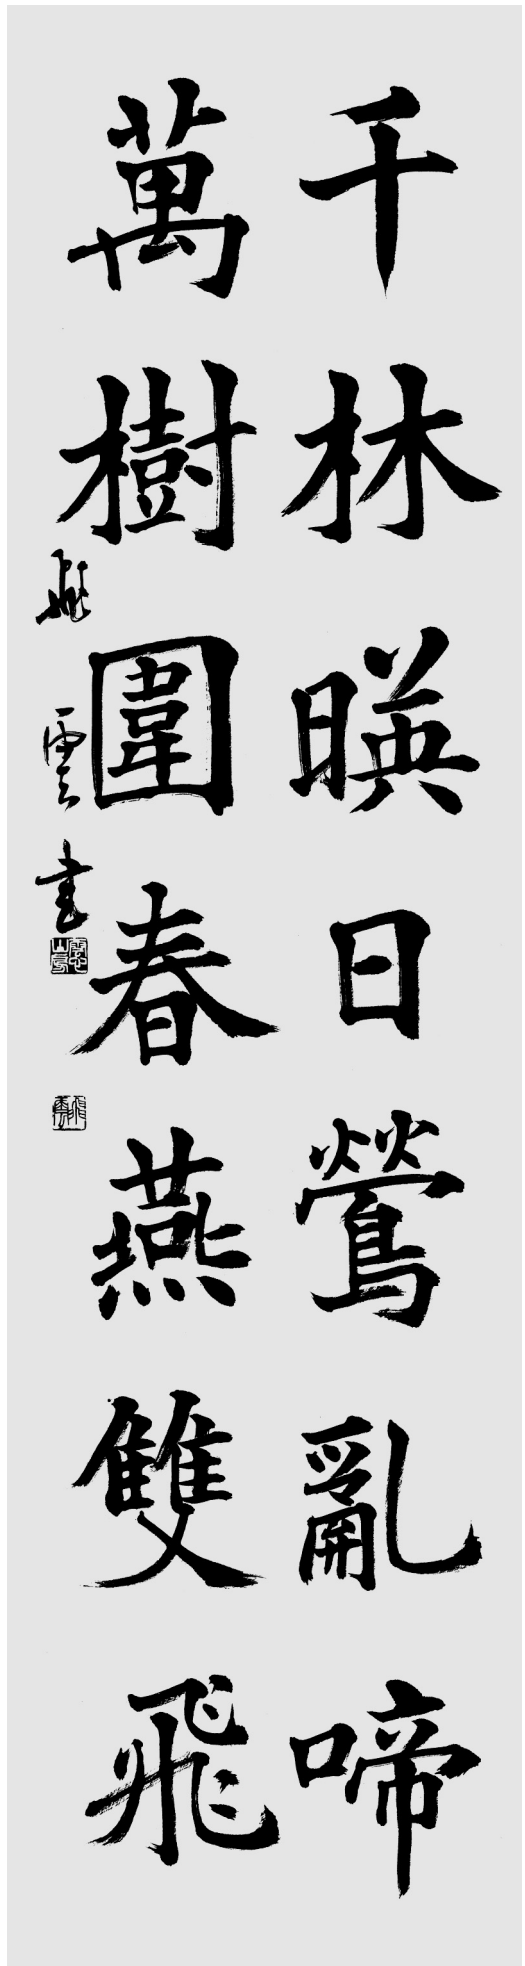 千林暎日鶯亂啼
萬樹圍春燕雙飛
雲書